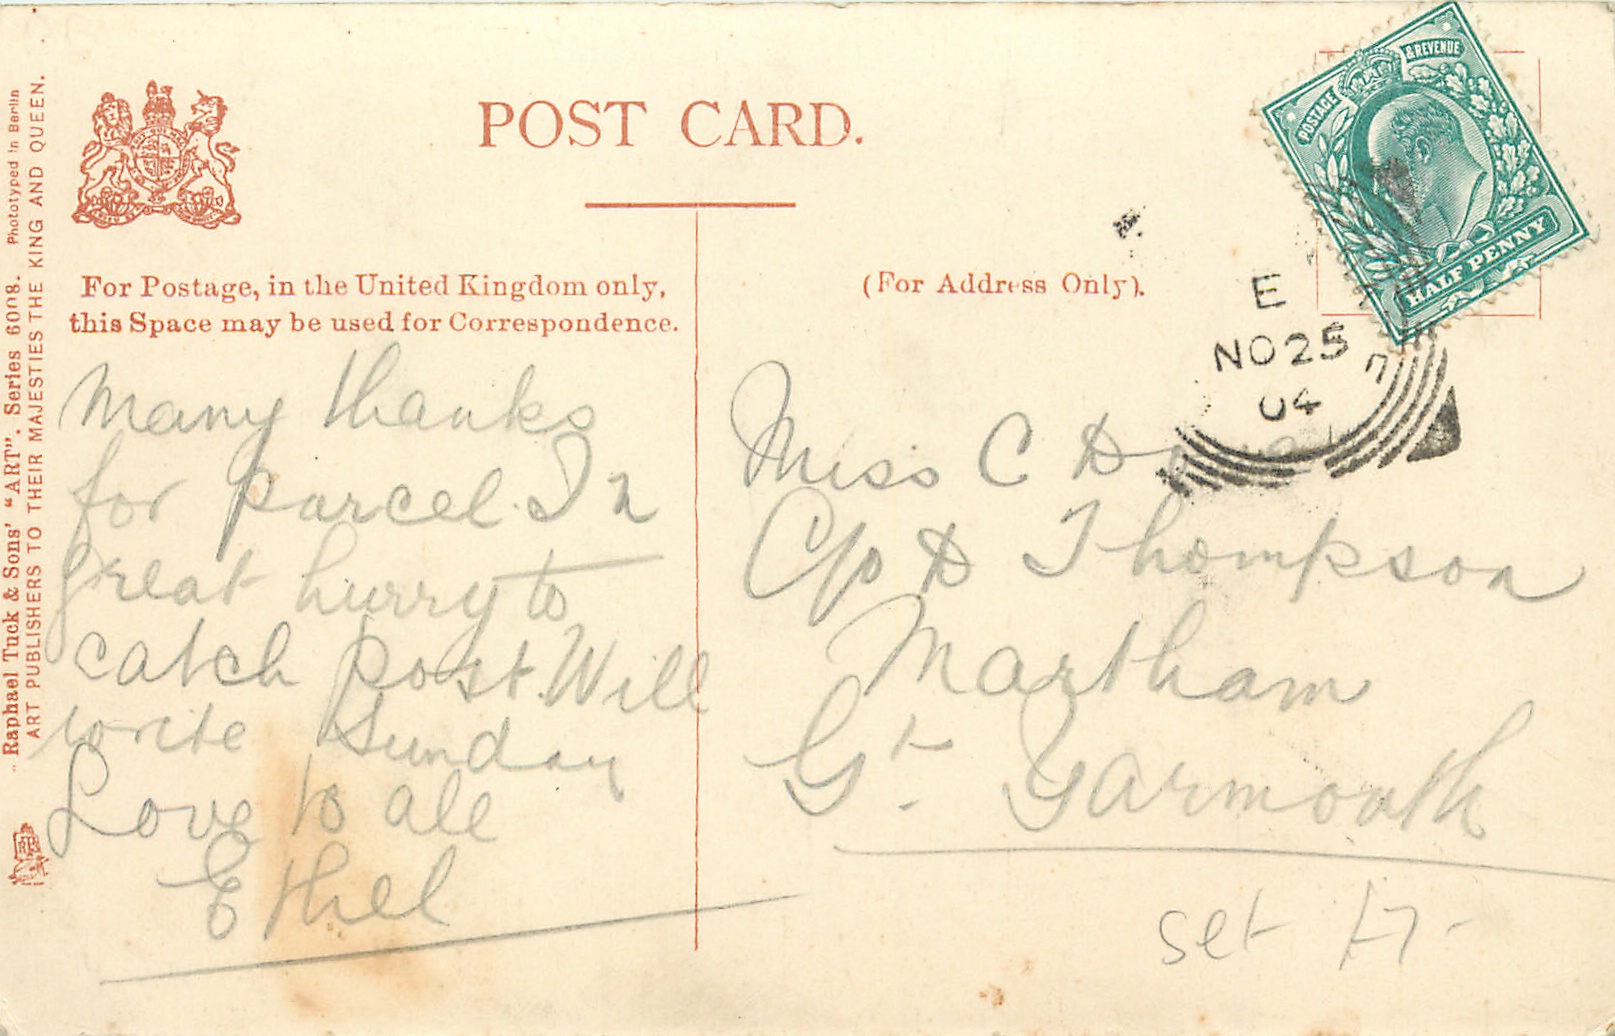 POST CARD.
For Postage, in the United Kingdom only,
this Space may be used for Correspondence.
(For Address Only).
Many thanks
for parcel. In
great hurry to
catch post. Will
write Sunday
Love to all
Ethel
Miss C
C/o D Thompson
Martham
Gt. Yarmouth
set 17-
POSTAGE & REVENUE
HALF PENNY
E
NO 25
04
Raphael Tuck & Sons' "ART". Series 6008. Phototyped in Berlin
ART PUBLISHERS TO THEIR MAJESTIES THE KING AND QUEEN.